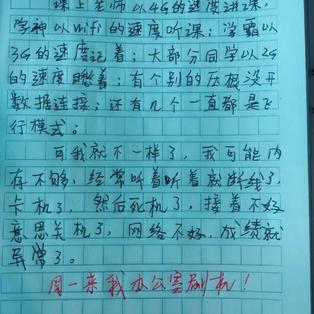 课上老师以4G的速度讲课，
学神以wifi的速度听课；学霸以
3G的速度记着；大部分同学以2G
的速度瞧着；有个别的压根没开
数据连接；还有几个一直都是飞
行模式。
可我就不一样了，我可能内
存不够，经常听着听着就断线了，
卡机了，然后死机了，接着不好
意思关机了，网络不好，成绩就
异常了。
周一来我办公室刷机！